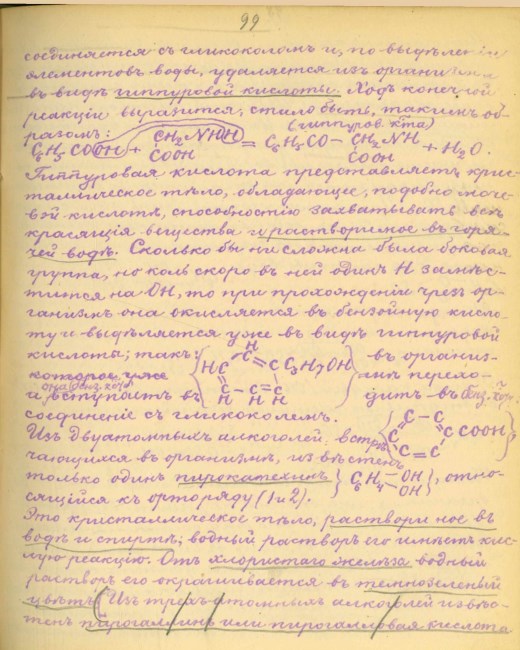 99
соединяется съ гликоколомъ и, по выдѣленіи
элементовъ воды, удаляется изъ организма
въ видѣ гиппуровой кислоты. Ходъ конечной
реакціи выразится, стало быть, такимъ об-
разомъ:
(гиппуров. к-та)
C₆H₅COOH + CH₂NHH COOH = C₆H₅CO – CH₂NH COOH + H₂O.
Гиппуровая кислота представляетъ крис-
таллическое тѣло, обладающее, подобно моче-
вой кислотѣ, способностію захватывать всѣ
красящія вещества и растворимое въ горя-
чей водѣ. Сколько бы ни сложна была боковая
группа, но коль скоро въ ней одинъ H замѣс-
тится на OH, то при прохожденіи чрезъ ор-
ганизмъ она окисляется въ бензойную кисло-
ту и выдѣляется уже въ видѣ гиппуровой
кислоты; такъ C₃H₇OH въ организ-
которое уже мѣ перехо-
и вступаетъ въ дитъ въ
соединеніе съ гликоколемъ. COOH
Изъ двуатомныхъ алкоголей, встрѣ-
чающихся въ организмѣ, извѣстенъ
только одинъ пирокатехинъ C₆H₄ OH OH, отно-
сящійся къ орторяду (1 и 2).
Это кристаллическое тѣло, растворимое въ
водѣ и спиртѣ; водный растворъ его имѣетъ кис-
лую реакцію. Отъ хлористаго желѣза водный
растворъ его окрашивается въ темнозеленый
цвѣтъ. Изъ трехатомныхъ алкоголей извѣс-
тенъ пирогаллинъ или пирогалловая кислота